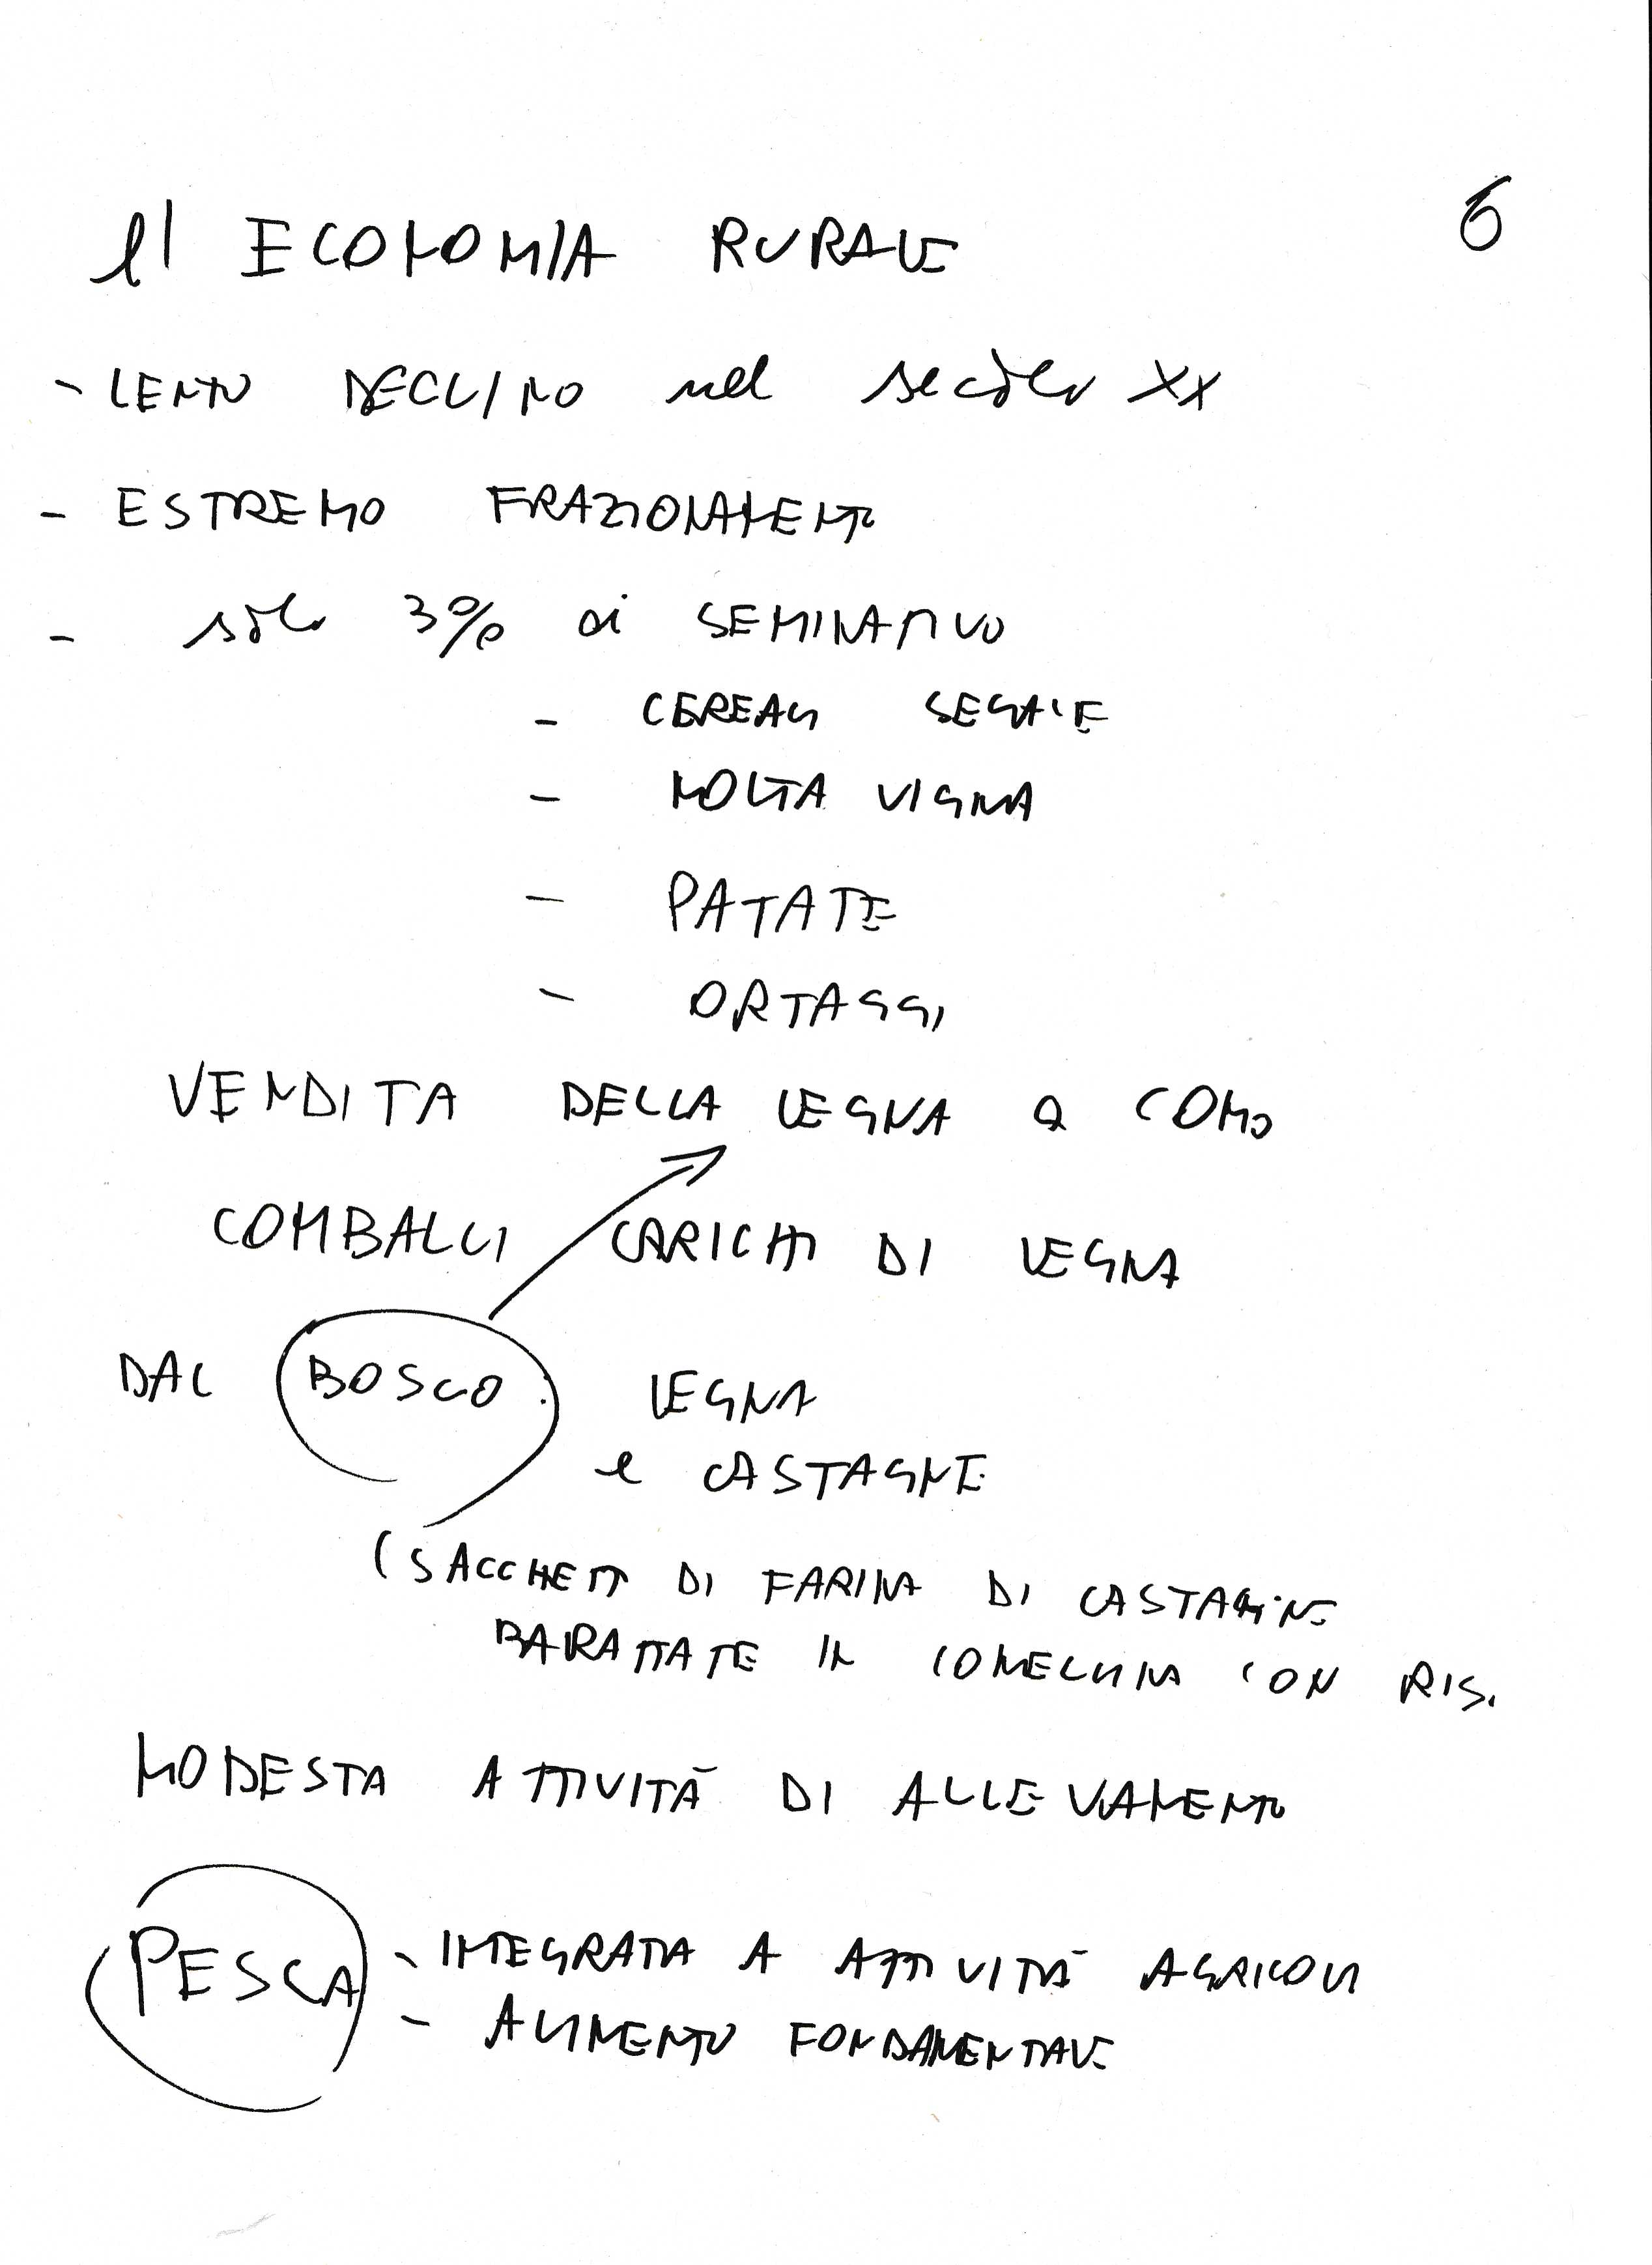 6
l' ECONOMIA RURALE
- LENTO DECLINO nel secolo XX
- ESTREMO FRAZIONAMENTO
- solo 3% di SEMINATIVO
- CEREALI SEGALE
- MOLTA VIGNA
- PATATE
- ORTAGGI
VENDITA DELLA LEGNA a COMO
COMBALLI CARICHI DI LEGNA
DAL BOSCO. LEGNA
e CASTAGNE
(SACCHETTI DI FARINA DI CASTAGNE
BARATTATE IN LOMELLINA CON RISO
MODESTA ATTIVITÀ DI ALLEVAMENTO
PESCA - INTEGRATA A ATTIVITÀ AGRICOLI
- ALIMENTO FONDAMENTALE